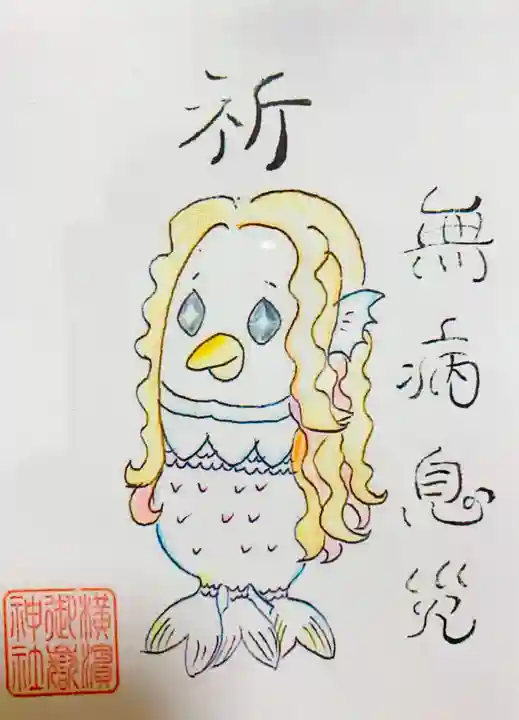 祈
無病息災
横濱
御嶽
神社